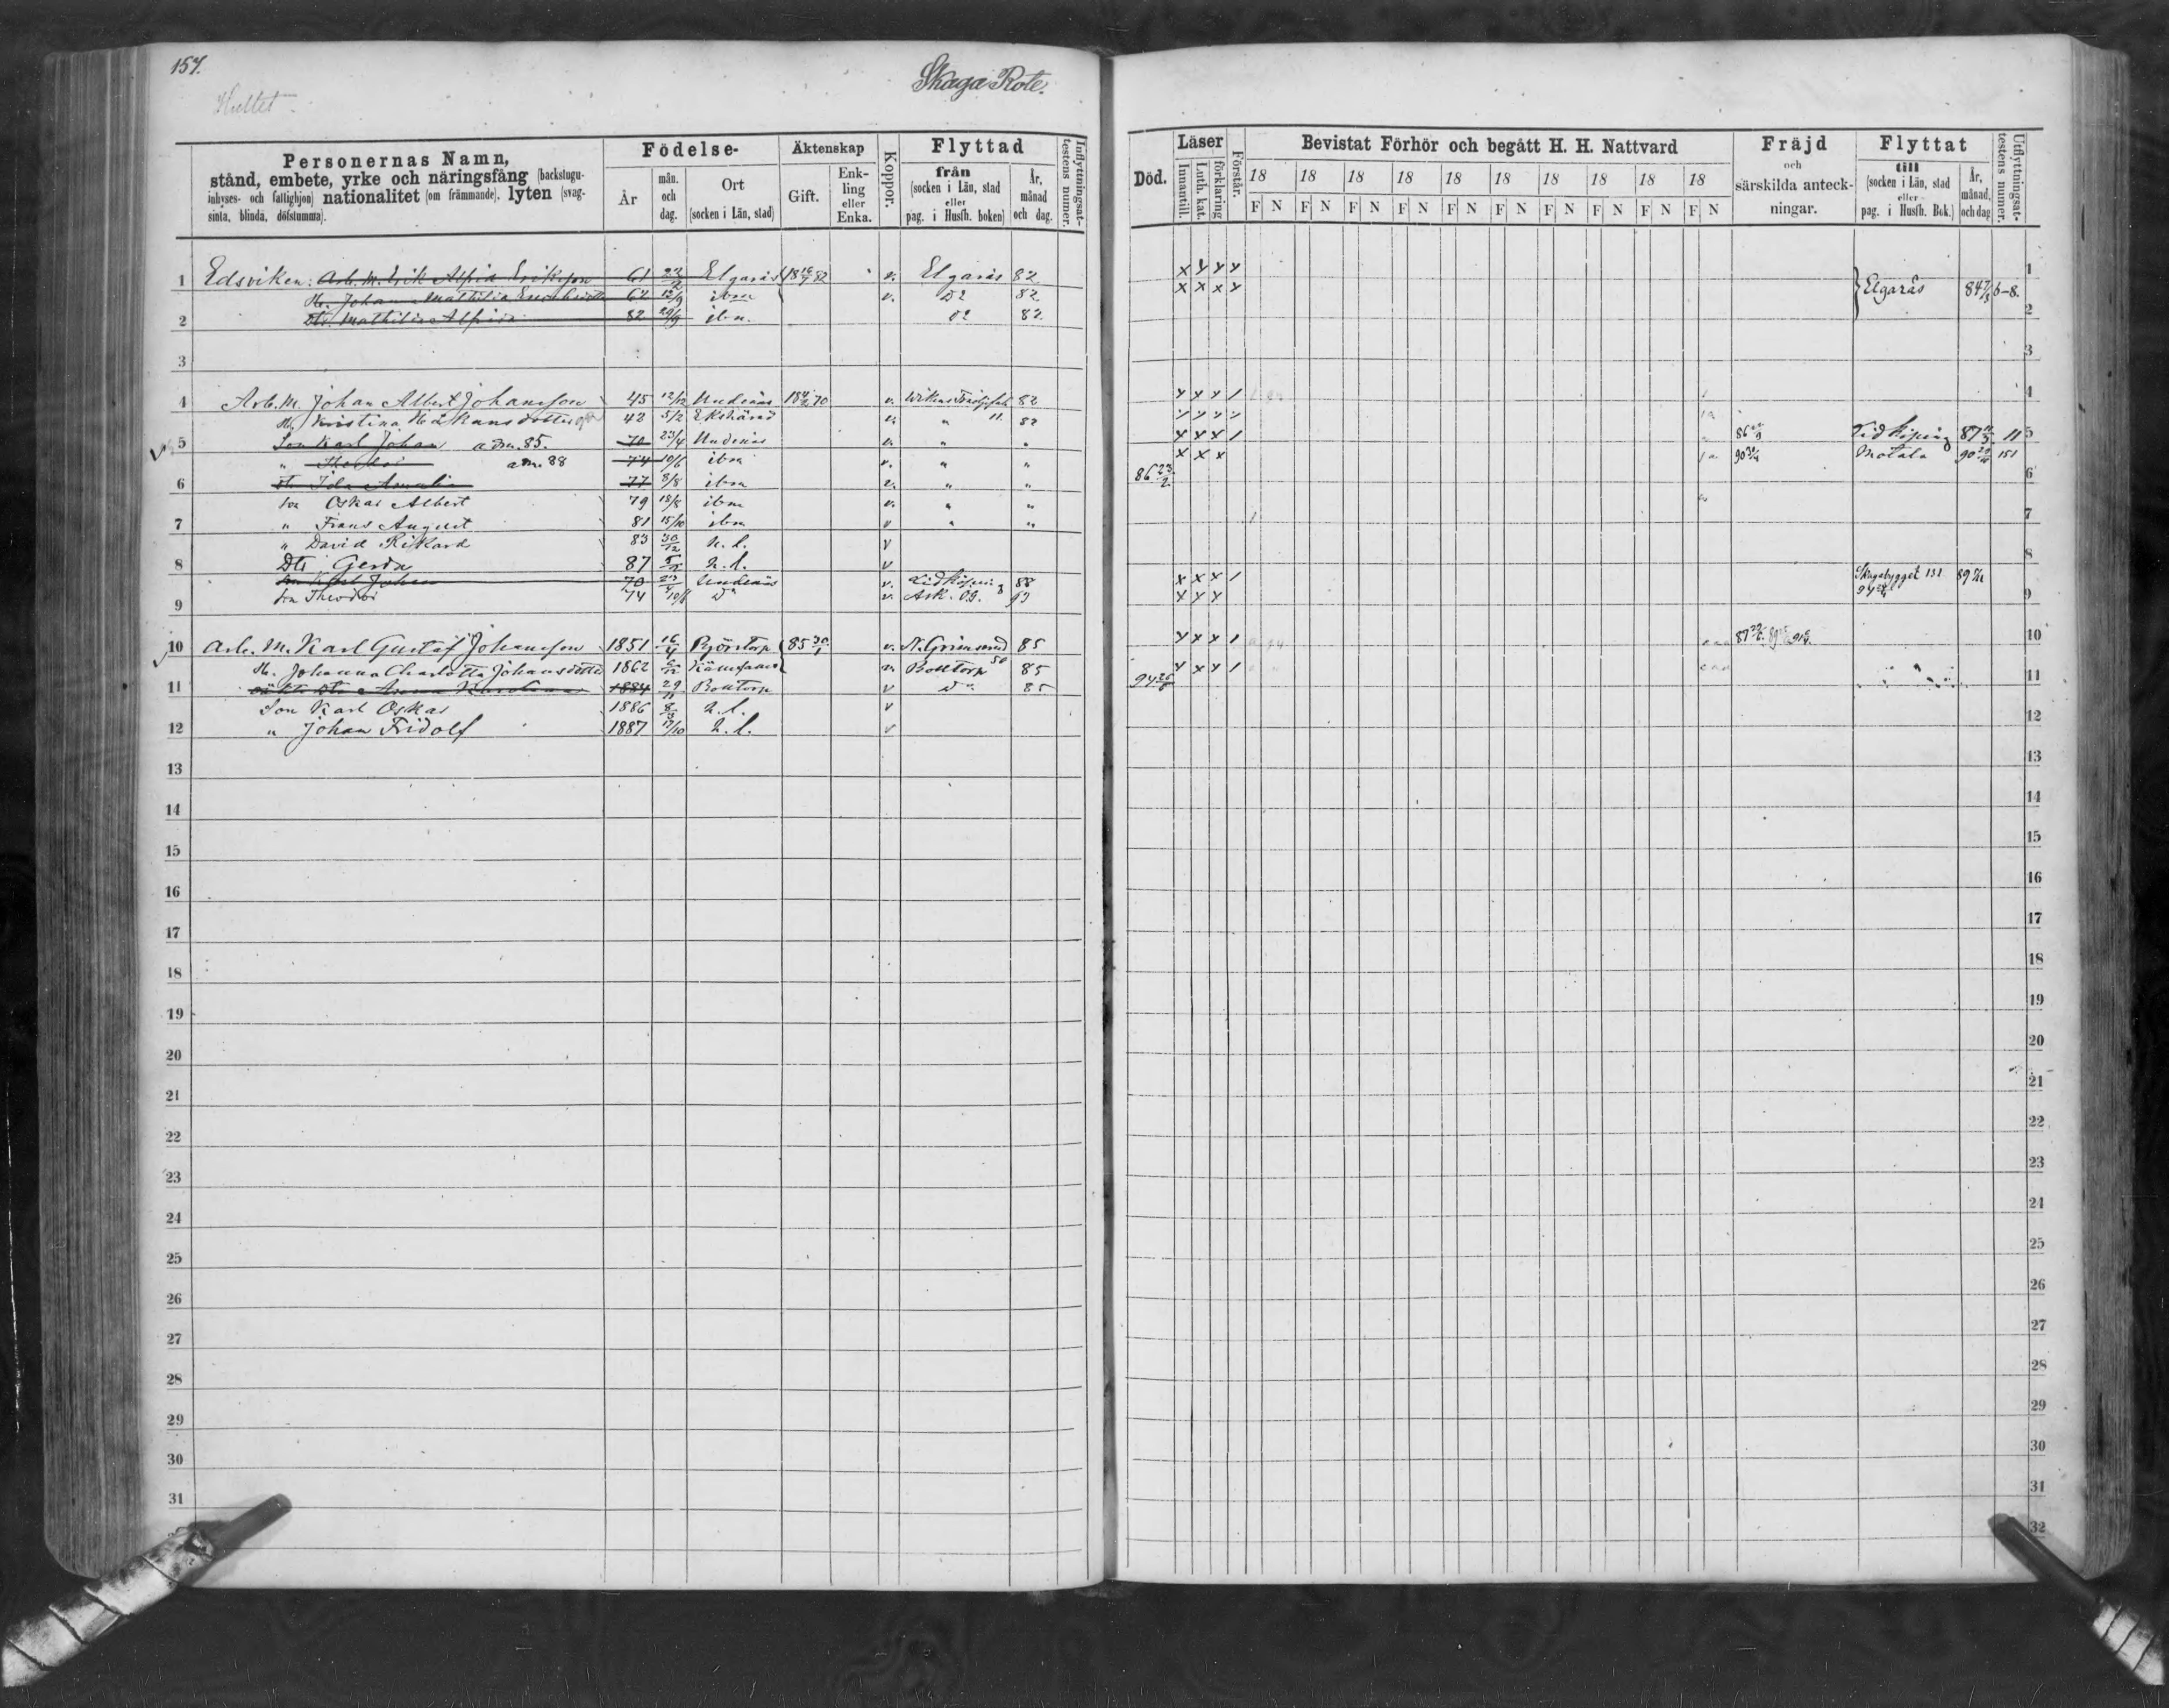 157.
Hultet
Skaga Rote.
Personernas Namn,
stånd, embete, yrke och näringsfång (backstugu-
inhyses- och fattighjon) nationalitet (om främmande), lyten (svag-
sinta, blinda, döfstumma).
Födelse-
År
mån. och dag.
Ort
(socken i Län, stad)
Äktenskap
Gift.
Enk-
ling
eller
Enka.
Koppor.
Flyttad
från
(socken i Län, stad
eller
pag. i Husfh. boken)
År,
månad
och dag.
Inflyttningsat-
testens numer.
Död.
Läser
Innantill.
Luth. kat.
förklaring
Förstår.
Bevistat Förhör och begått H. H. Nattvard
18 18 18 18 18 18 18 18 18 18
F N F N F N F N F N F N F N F N F N F N
Fräjd
och
särskilda anteck-
ningar.
Flyttat
till
(socken i Län, stad
eller
pag. i Husfh. Bok.)
År,
månad,
och dag
Utflyttningsat-
testens numer.
1 Edsviken: Arb. M. Erik Alfrid Eriksson 61 Elgarås 82 v. Elgarås 82 x x x x 1
H. Johanna Mathilda 62 12/9 ibm v. Do 82 x x x x } Elgarås 84 6-8.
2 Dtr. Mathilda Alfrida 82 29/9 ibm. Do 82 2
3 3
4 Arb. M. Johan Albert Johansson 45 12/12 Undenäs 70 v. 82 x x x 1 4
H. Kristina Håkansdotter 42 5/2 Ekshärad v. " 11. 82
5 Son Karl Johan adm. 85. 70 23/4 Undenäs v. " " x x x 1 86 Lidköping 87 11 5
" adm. 88 74 10/6 ibm v. " " x x x 90 Motala 90 151
6 Dr. Ida Amalia 77 8/8 ibm v. " " 86 23/2 6
Son Oskar Albert 79 18/8 ibm v. " "
7 " Frans August 81 15/10 ibm v " " 7
" David Rikard 83 30/12 h. f. v
8 Dtr Gerda 87 h. f. v 8
Son Karl Johan 70 23/4 Undenäs v. Lidköping 88 x x x 1 Skagabygget 131 89
9 Son Theodor 74 10/6 Do v. Ask. Ög. 93 x x x 94 9
10 Arb. M. Karl Gustaf Johansson 1851 16/4 Björtorp 85 30/1 v. N. Grimsmed 85 x x x 1 87 10
H. Johanna Charlotta Johansdotter 1862 v. Boltorp 50 85 x x x 1
11 Dtr Anna Karolina 1884 29/11 Boltorp v Do 85 94 11
Son Karl Oskar 1886 h. f. v
12 " Johan Fridolf 1887 h. f. v 12
13 13
14 14
15 15
16 16
17 17
18 18
19 19
20 20
21 21
22 22
23 23
24 24
25 25
26 26
27 27
28 28
29 29
30 30
31 31
32